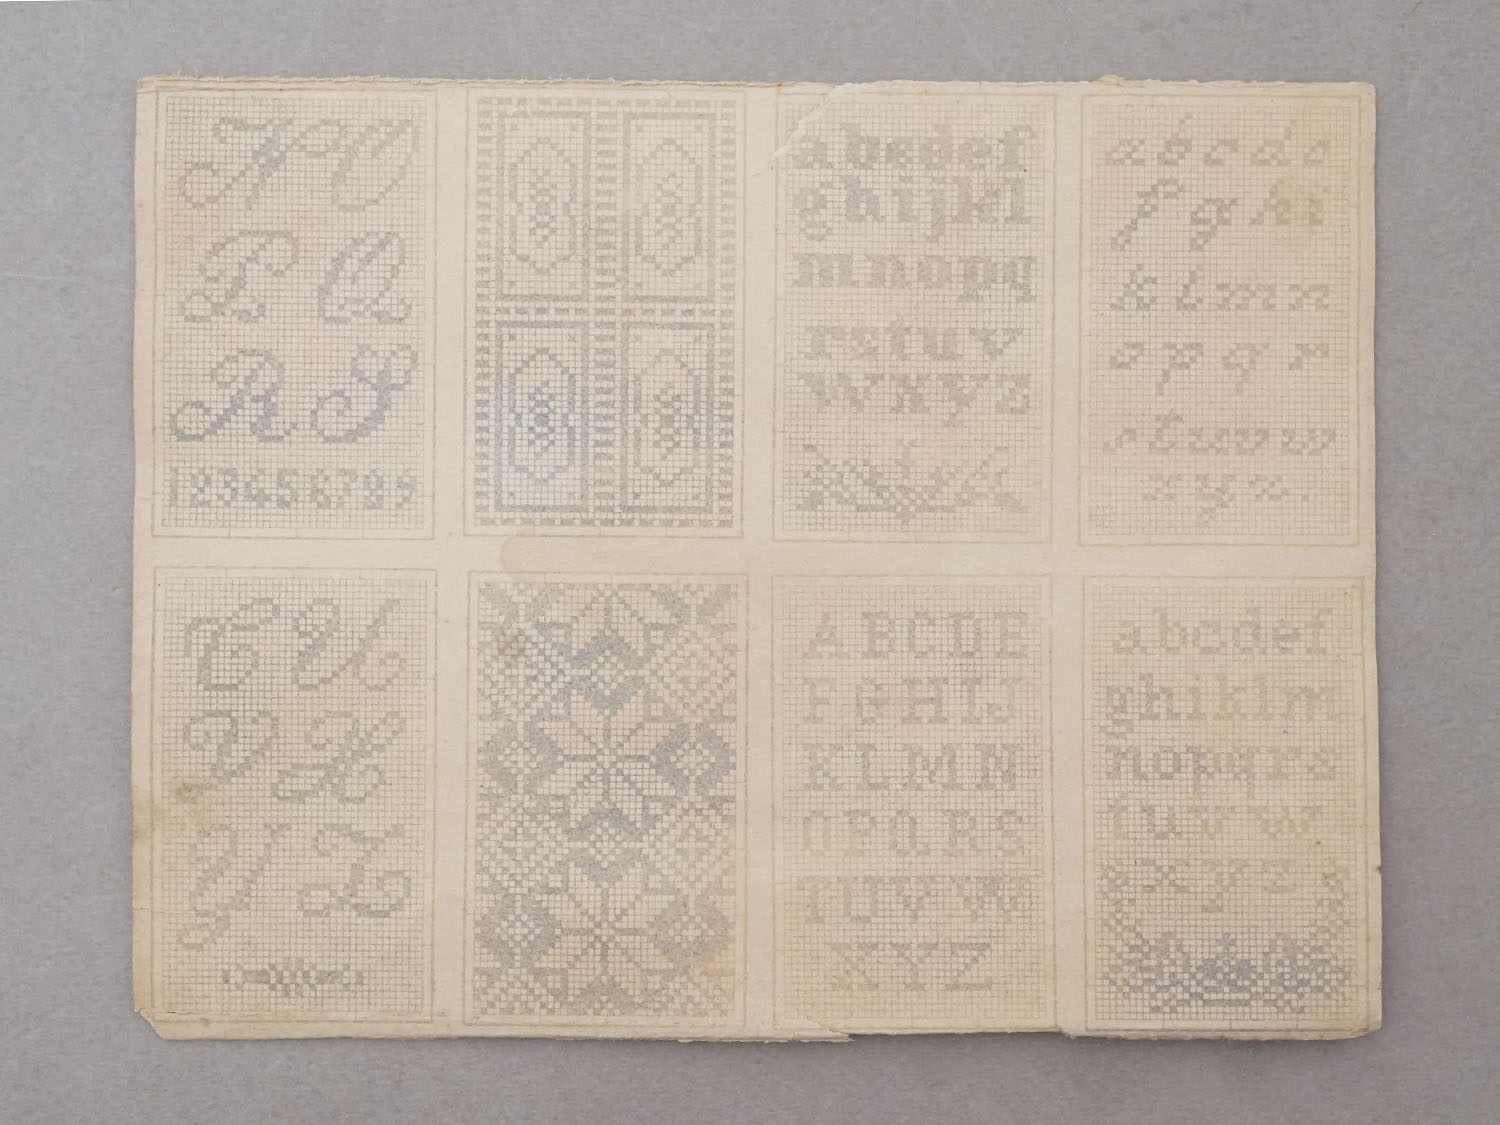 N O
P Q
R S
123456789
abcdef
ghijkl
mnopq
rstuv
wxyz
abcde
fghi
klmn
opqr
stuvw
xyz.
T U
V X
Y Z
ABCDE
FGHIJ
KLMN
OPQRS
TUVW
XYZ
abcdef
ghiklm
nopqrs
tuvw
xyz